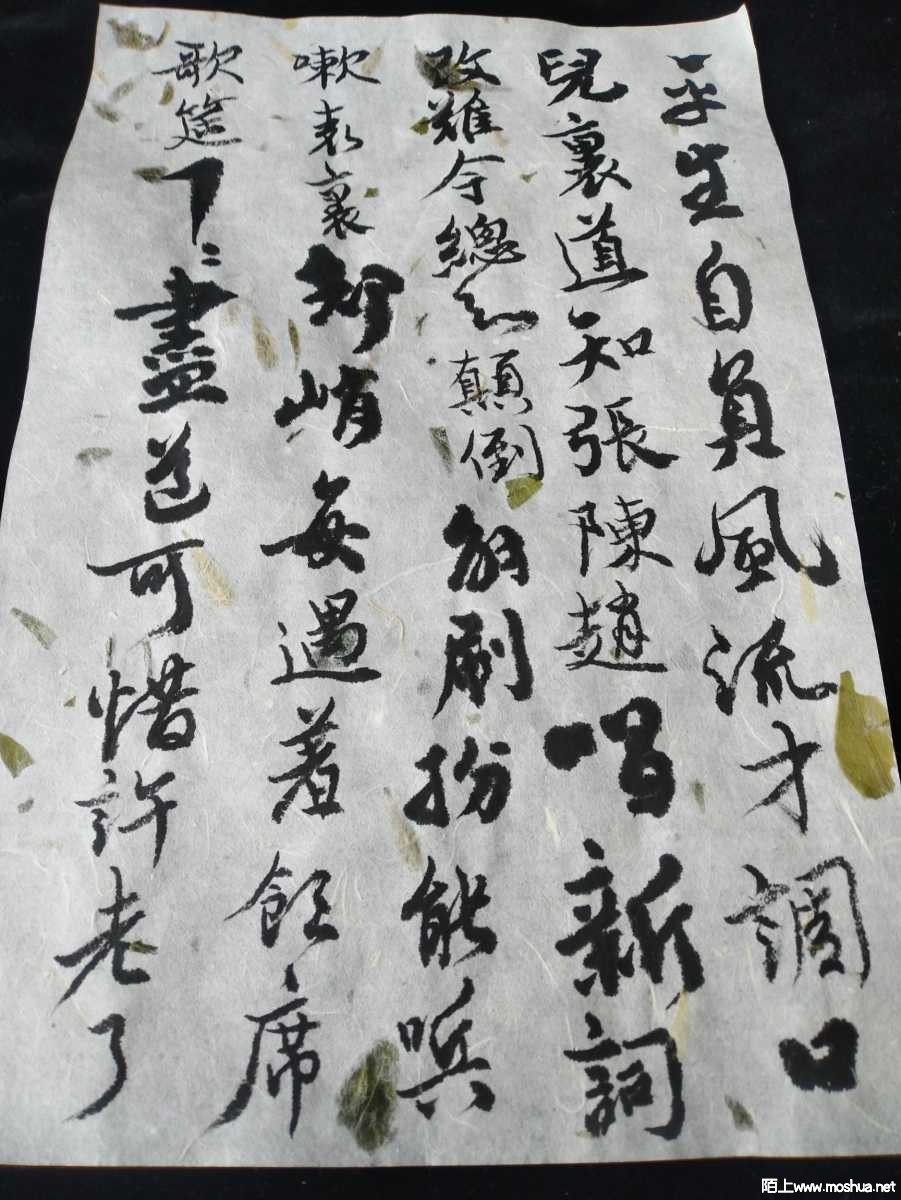 平生自負風流才調口
兒裏道知張陳趙唱新詞
改難令總知顛倒解刷扮能㖹
嗽表裏都峭每遇着飲席
歌筵人〻盡道可惜許老了
陌上www.moshua.net